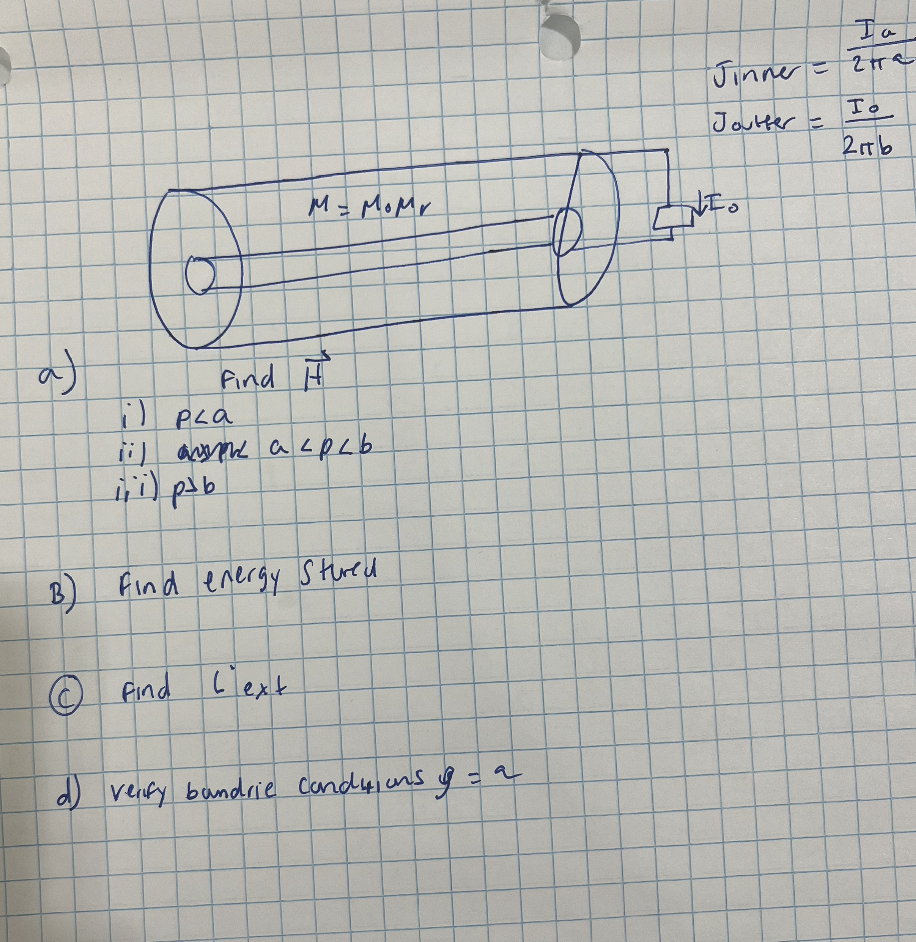 Jinner = Ia / 2πa
Jouter = Io / 2πb
M = MoMr
↓Io
a) Find H⃗
i) p<a
ii) a<p<b
iii) p>b
B) Find energy stured
C) Find L'ext
d) verify bandrie conditions = a